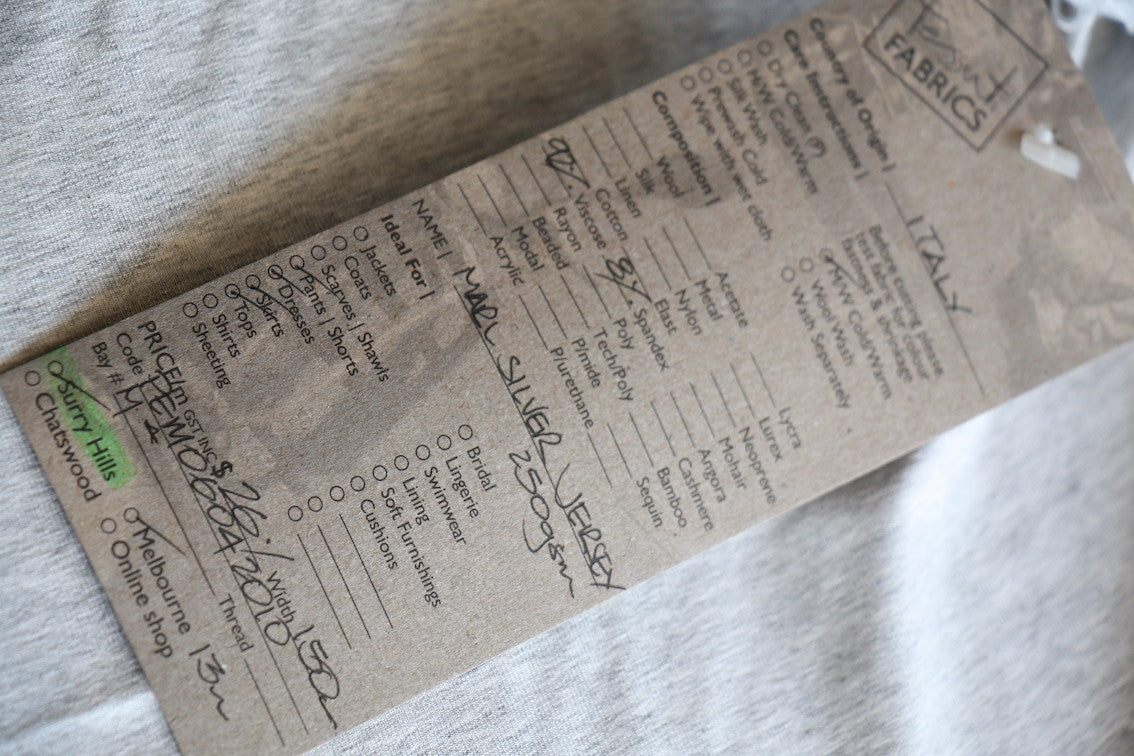 Tessuti
FABRICS
Country of Origin | ITALY
Care Instructions |
Dry Clean (P)
H/W Cold/Warm
Silk Wash
Prewash Cold
Wipe with wet cloth
Before cutting please
test fabric for colour
fastness & shrinkage
M/W Cold/Warm
Wool Wash
Wash Separately
Composition |
Wool
Silk
Linen
Cotton
92% Viscose
Rayon
Beaded
Modal
Acrylic
Acetate
Metal
Nylon
Elast
8% Spandex
Poly
Tech/Poly
P/mide
P/urethane
Lycra
Lurex
Neoprene
Mohair
Angora
Cashmere
Bamboo
Sequin
NAME | MARL SILVER JERSEY
250gsm
Ideal For |
Jackets
Coats
Scarves | Shawls
Pants | Shorts
Dresses
Skirts
Tops
Shirts
Sheeting
Bridal
Lingerie
Swimwear
Lining
Soft Furnishings
Cushions
PRICE/m GST INC $ 26./ Width 150
Code DEMO6042010
Bay #. Thread
Surry Hills
Chatswood
Melbourne 13m
Online shop